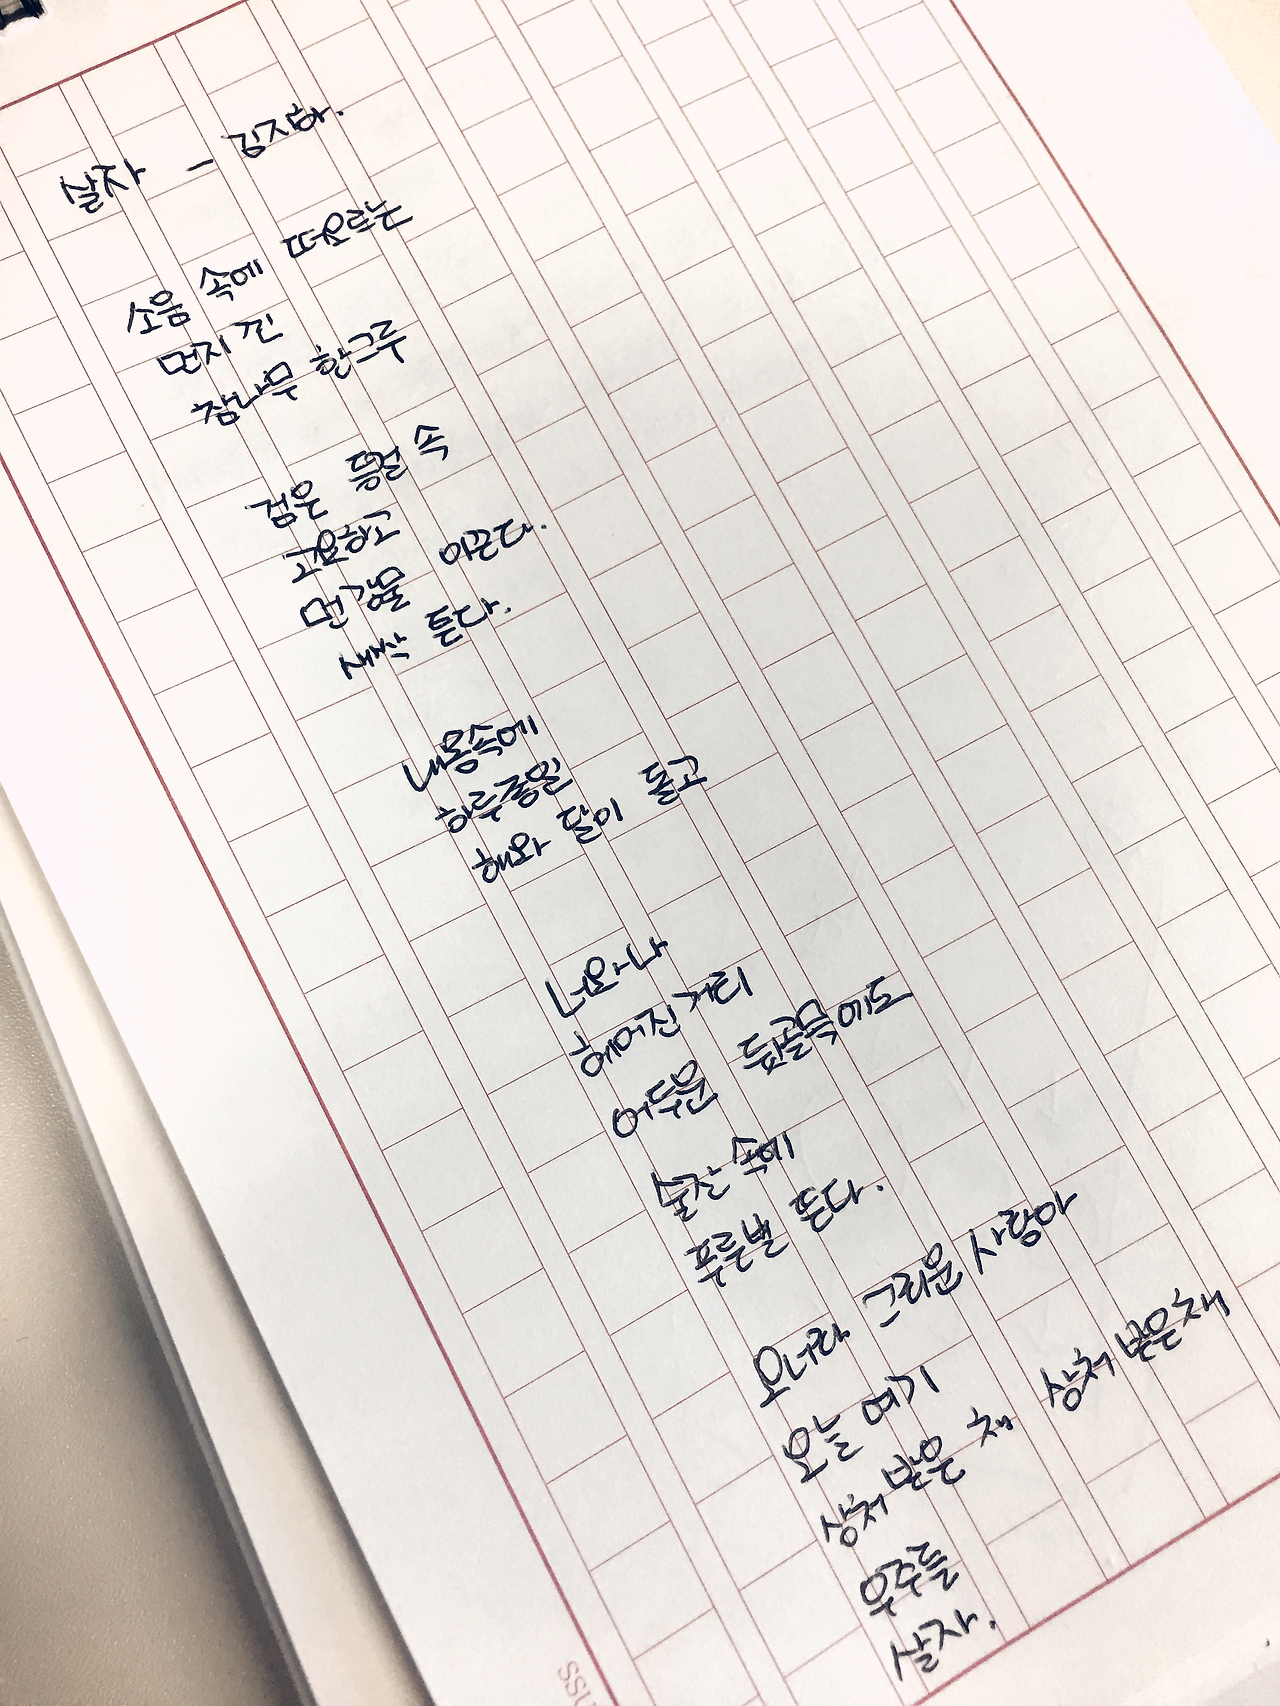 살자 - 김지하.
소음 속에 떠오르는
먼지 낀
참나무 한그루
검은 등걸 속
고요하고
먼 강물 이끈다.
새싹 튼다.
내몸속에
하루종일
해와 달이 돌고
너와 나
헤어진 거리
어두운 뒷골목에도
술잔 속에
푸른별 뜬다.
오너라 그리운 사랑아
오늘 여기
상처 받은 채 상처 받은 채
우주를
살자.
SSU